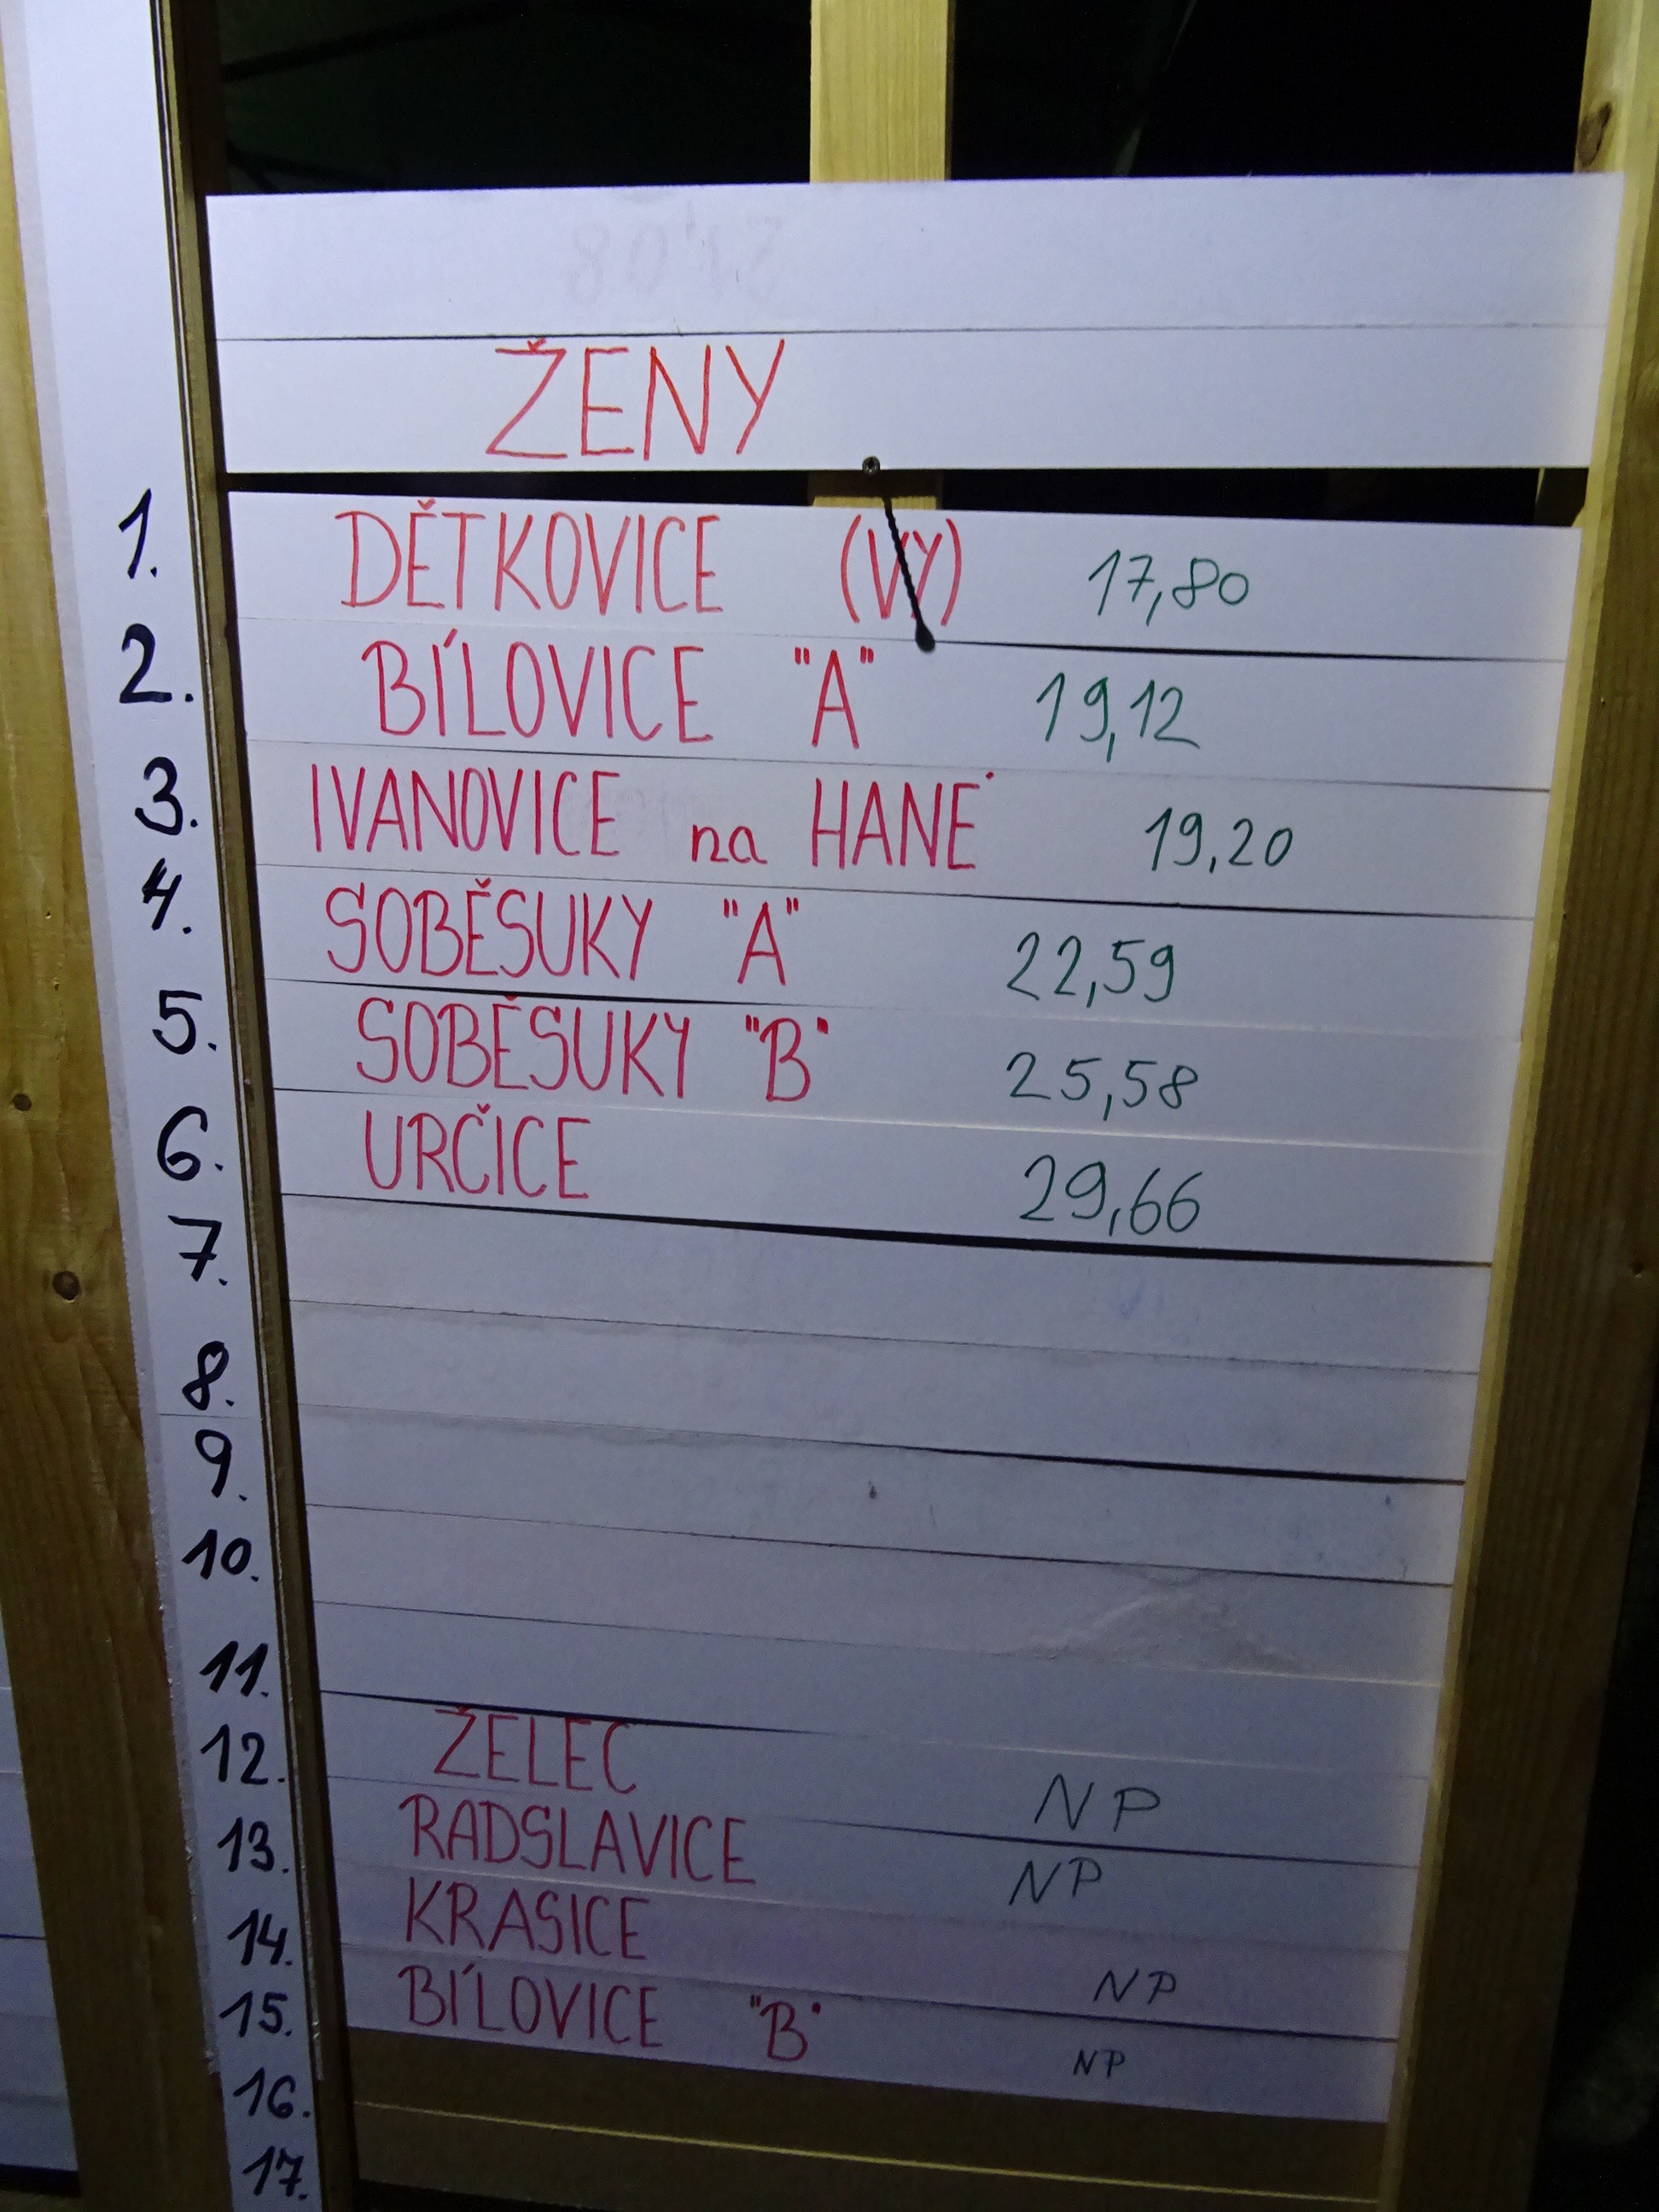 ŽENY
1. DĚTKOVICE (VY) 17,80
2. BÍLOVICE "A" 19,12
3. IVANOVICE na HANÉ 19,20
4. SOBĚSUKY "A" 22,59
5. SOBĚSUKY "B" 25,58
6. URČICE 29,66
7.
8.
9.
10.
11.
12. ŽELEČ NP
13. RADSLAVICE NP
14. KRASICE NP
15. BÍLOVICE "B" NP
16.
17.